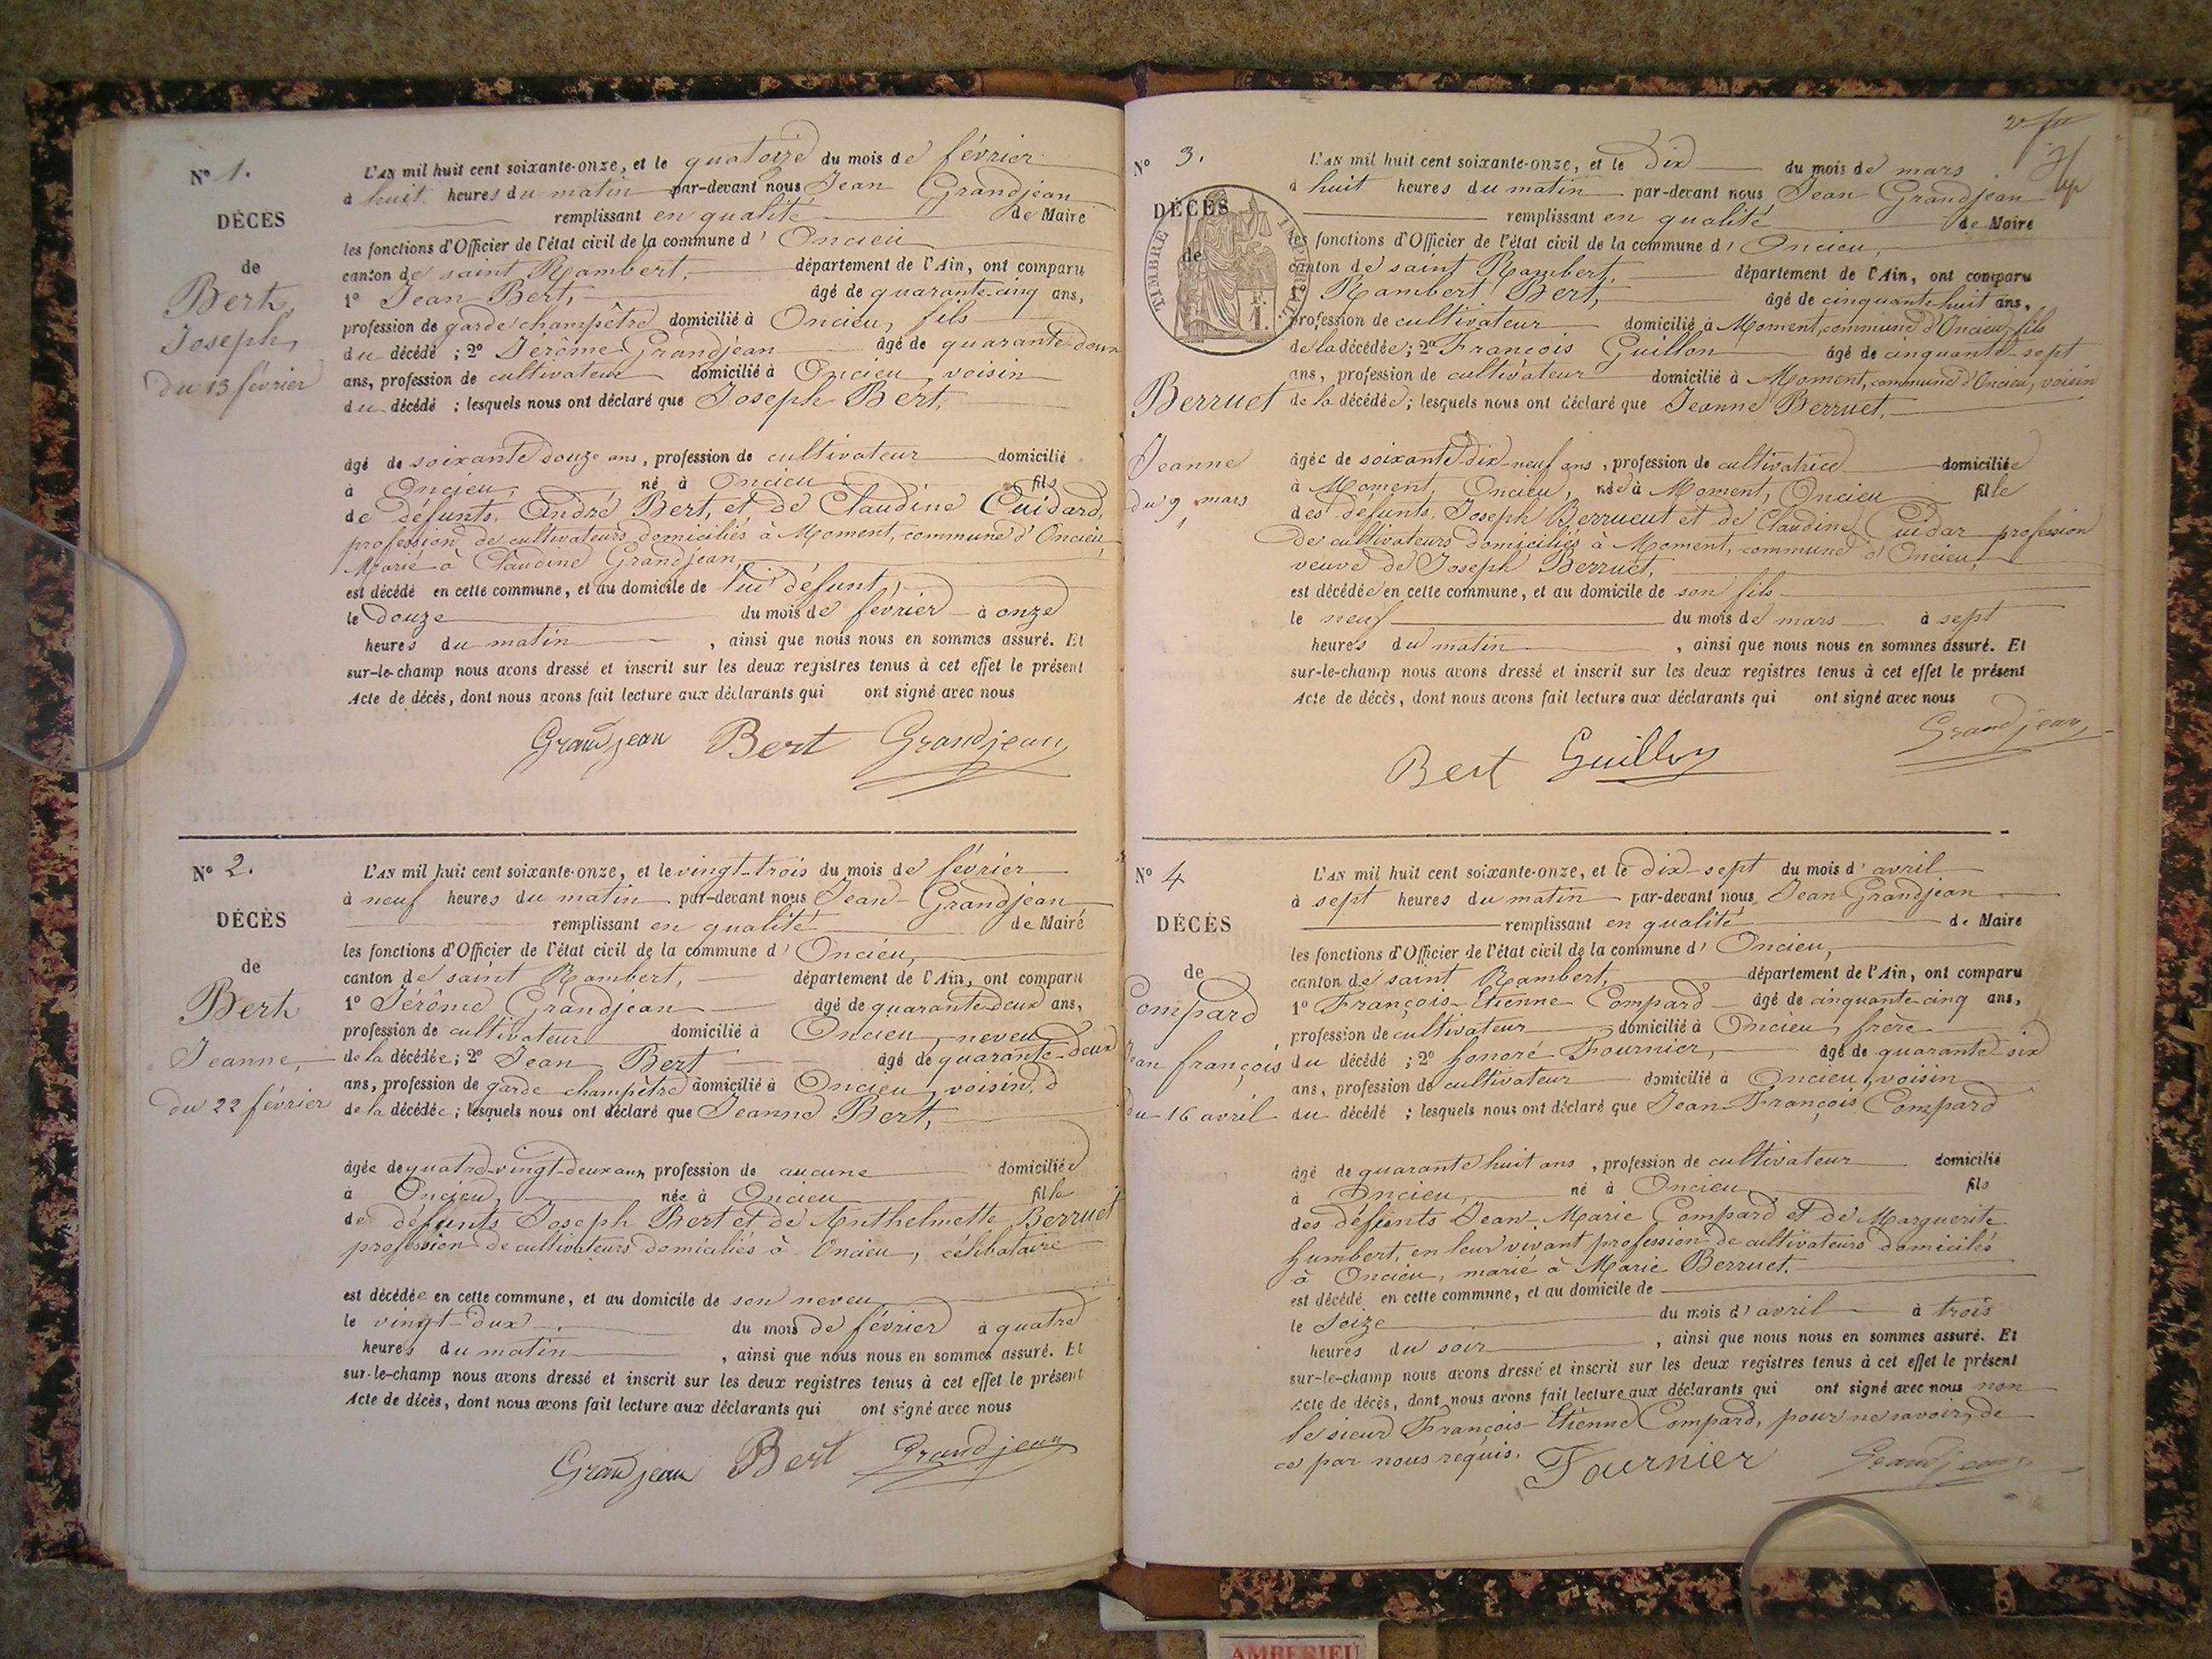 N° 1.
DÉCÈS
de
Bert,
Joseph,
Du 13 février
L'AN mil huit cent soixante-onze, et le quatorze du mois de février
à huit heures du matin par-devant nous Jean Grandjean
remplissant en qualité de Maire
les fonctions d'Officier de l'état civil de la commune d' Oncieu
canton de saint Rambert, département de l'Ain, ont comparu
1° Jean Bert, âgé de quarante-cinq ans,
profession de garde champêtre domicilié à Oncieu, fils
du décédé ; 2° Jérôme Grandjean âgé de quarante-deux
ans, profession de cultivateur domicilié à Oncieu, voisin
du décédé ; lesquels nous ont déclaré que Joseph Bert,
âgé de soixante douze ans, profession de cultivateur domicilié
à Oncieu, né à Oncieu fils
de défunts André Bert, et de Claudine Cuidard,
profession de cultivateurs domiciliés à Moment, commune d'Oncieu,
Marié à Claudine Grandjean,
est décédé en cette commune, et au domicile de lui défunt,
le douze du mois de février à onze
heures du matin, ainsi que nous nous en sommes assuré. Et
sur-le-champ nous avons dressé et inscrit sur les deux registres tenus à cet effet le présent
Acte de décès, dont nous avons fait lecture aux déclarants qui ont signé avec nous
Grandjean Bert Grandjean
N° 2.
DÉCÈS
de
Bert
Jeanne,
du 22 février
L'AN mil huit cent soixante-onze, et le vingt-trois du mois de février
à neuf heures du matin par-devant nous Jean Grandjean
remplissant en qualité de Maire
les fonctions d'Officier de l'état civil de la commune d' Oncieu,
canton de saint Rambert, département de l'Ain, ont comparu
1° Jérôme Grandjean âgé de quarante-deux ans,
profession de cultivateur domicilié à Oncieu, neveu
de la décédée ; 2° Jean Bert âgé de quarante-deux
ans, profession de garde champêtre domicilié à Oncieu, voisin d
de la décédée ; lesquels nous ont déclaré que Jeanne Bert,
âgée de quatre-vingt-deux ans, profession de aucune domiciliée
à Oncieu, née à Oncieu fille
de défunts Joseph Bert et de Anthelmette Berruet
profession de cultivateurs domiciliés à Oncieu, célibataire
est décédée en cette commune, et au domicile de son neveu
le vingt-dux du mois de février à quatre
heures du matin, ainsi que nous nous en sommes assuré. Et
sur-le-champ nous avons dressé et inscrit sur les deux registres tenus à cet effet le présent
Acte de décès, dont nous avons fait lecture aux déclarants qui ont signé avec nous
Grandjean Bert Grandjean
N° 3.
DÉCÈS
de
TIMBRE IMPERIAL
1 F.
Berruet
Jeanne
du 9 mars
L'AN mil huit cent soixante-onze, et le Dix du mois de mars
à huit heures du matin par-devant nous Jean Grandjean
remplissant en qualité de Maire
les fonctions d'Officier de l'état civil de la commune d' Oncieu,
canton de saint Rambert, département de l'Ain, ont comparu
1° Rambert Bert, âgé de cinquante-huit ans,
profession de cultivateur domicilié à Moment, commune d'Oncieu, fils
de la décédée ; 2° François Guillon âgé de cinquante-sept
ans, profession de cultivateur domicilié à Moment, commune d'Oncieu, voisin
de la décédée ; lesquels nous ont déclaré que Jeanne Berruet,
âgée de soixante-dix-neuf ans, profession de cultivatrice domiciliée
à Moment, Oncieu, née à Moment, Oncieu fille
des défunts Joseph Berrueut et de Claudine Cuidar profession
de cultivateurs domiciliés à Moment, commune d'Oncieu,
veuve de Joseph Berruet,
est décédée en cette commune, et au domicile de son fils
le neuf du mois de mars à sept
heures du matin, ainsi que nous nous en sommes assuré. Et
sur-le-champ nous avons dressé et inscrit sur les deux registres tenus à cet effet le présent
Acte de décès, dont nous avons fait lecture aux déclarants qui ont signé avec nous
Bert Guillon Grandjean
N° 4
DÉCÈS
de
Compard
Jean françois
du 16 avril
L'AN mil huit cent soixante-onze, et le Dix-sept du mois d' avril
à sept heures du matin par-devant nous Jean Grandjean
remplissant en qualité de Maire
les fonctions d'Officier de l'état civil de la commune d' Oncieu,
canton de saint Rambert, département de l'Ain, ont comparu
1° François-Etienne Compard âgé de cinquante-cinq ans,
profession de cultivateur domicilié à Oncieu, frère
du décédé ; 2° honoré Fournier, âgé de quarante-six
ans, profession de cultivateur domicilié à Oncieu, voisin
du décédé ; lesquels nous ont déclaré que Jean-François Compard
âgé de quarante huit ans, profession de cultivateur domicilié
à Oncieu, né à Oncieu, fils
des défunts Jean-Marie Compard et de Marguerite
humbert, en leur vivant profession de cultivateurs domiciliés
à Oncieu, marié à Marie Berruet.
est décédé en cette commune, et au domicile de
le Seize du mois d' avril à trois
heures du soir, ainsi que nous nous en sommes assuré. Et
sur-le-champ nous avons dressé et inscrit sur les deux registres tenus à cet effet le présent
Acte de décès, dont nous avons fait lecture aux déclarants qui ont signé avec nous non
le sieur François-Etienne Compard, pour ne savoir, de
ce par nous requis. Fournier Grandjean
AMBERIEU